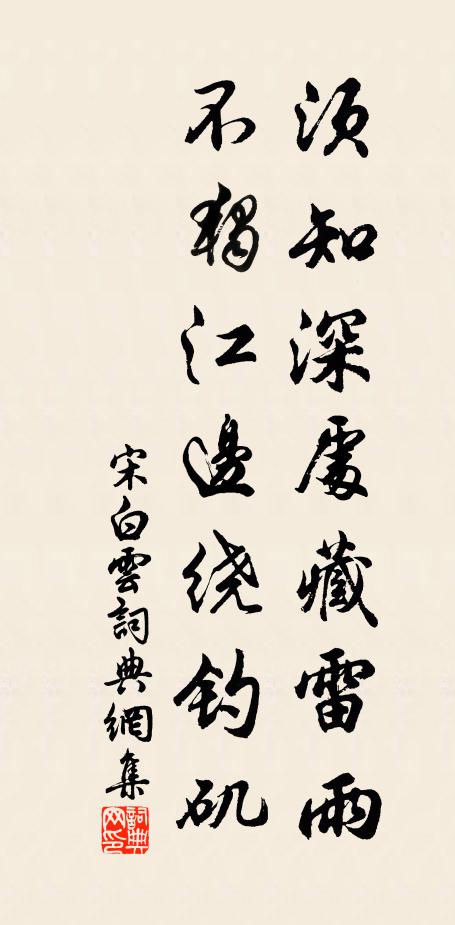 须知深處藏雷雨
不獨江邊绕钓矶
宋白雲詞典網集
詞典网印